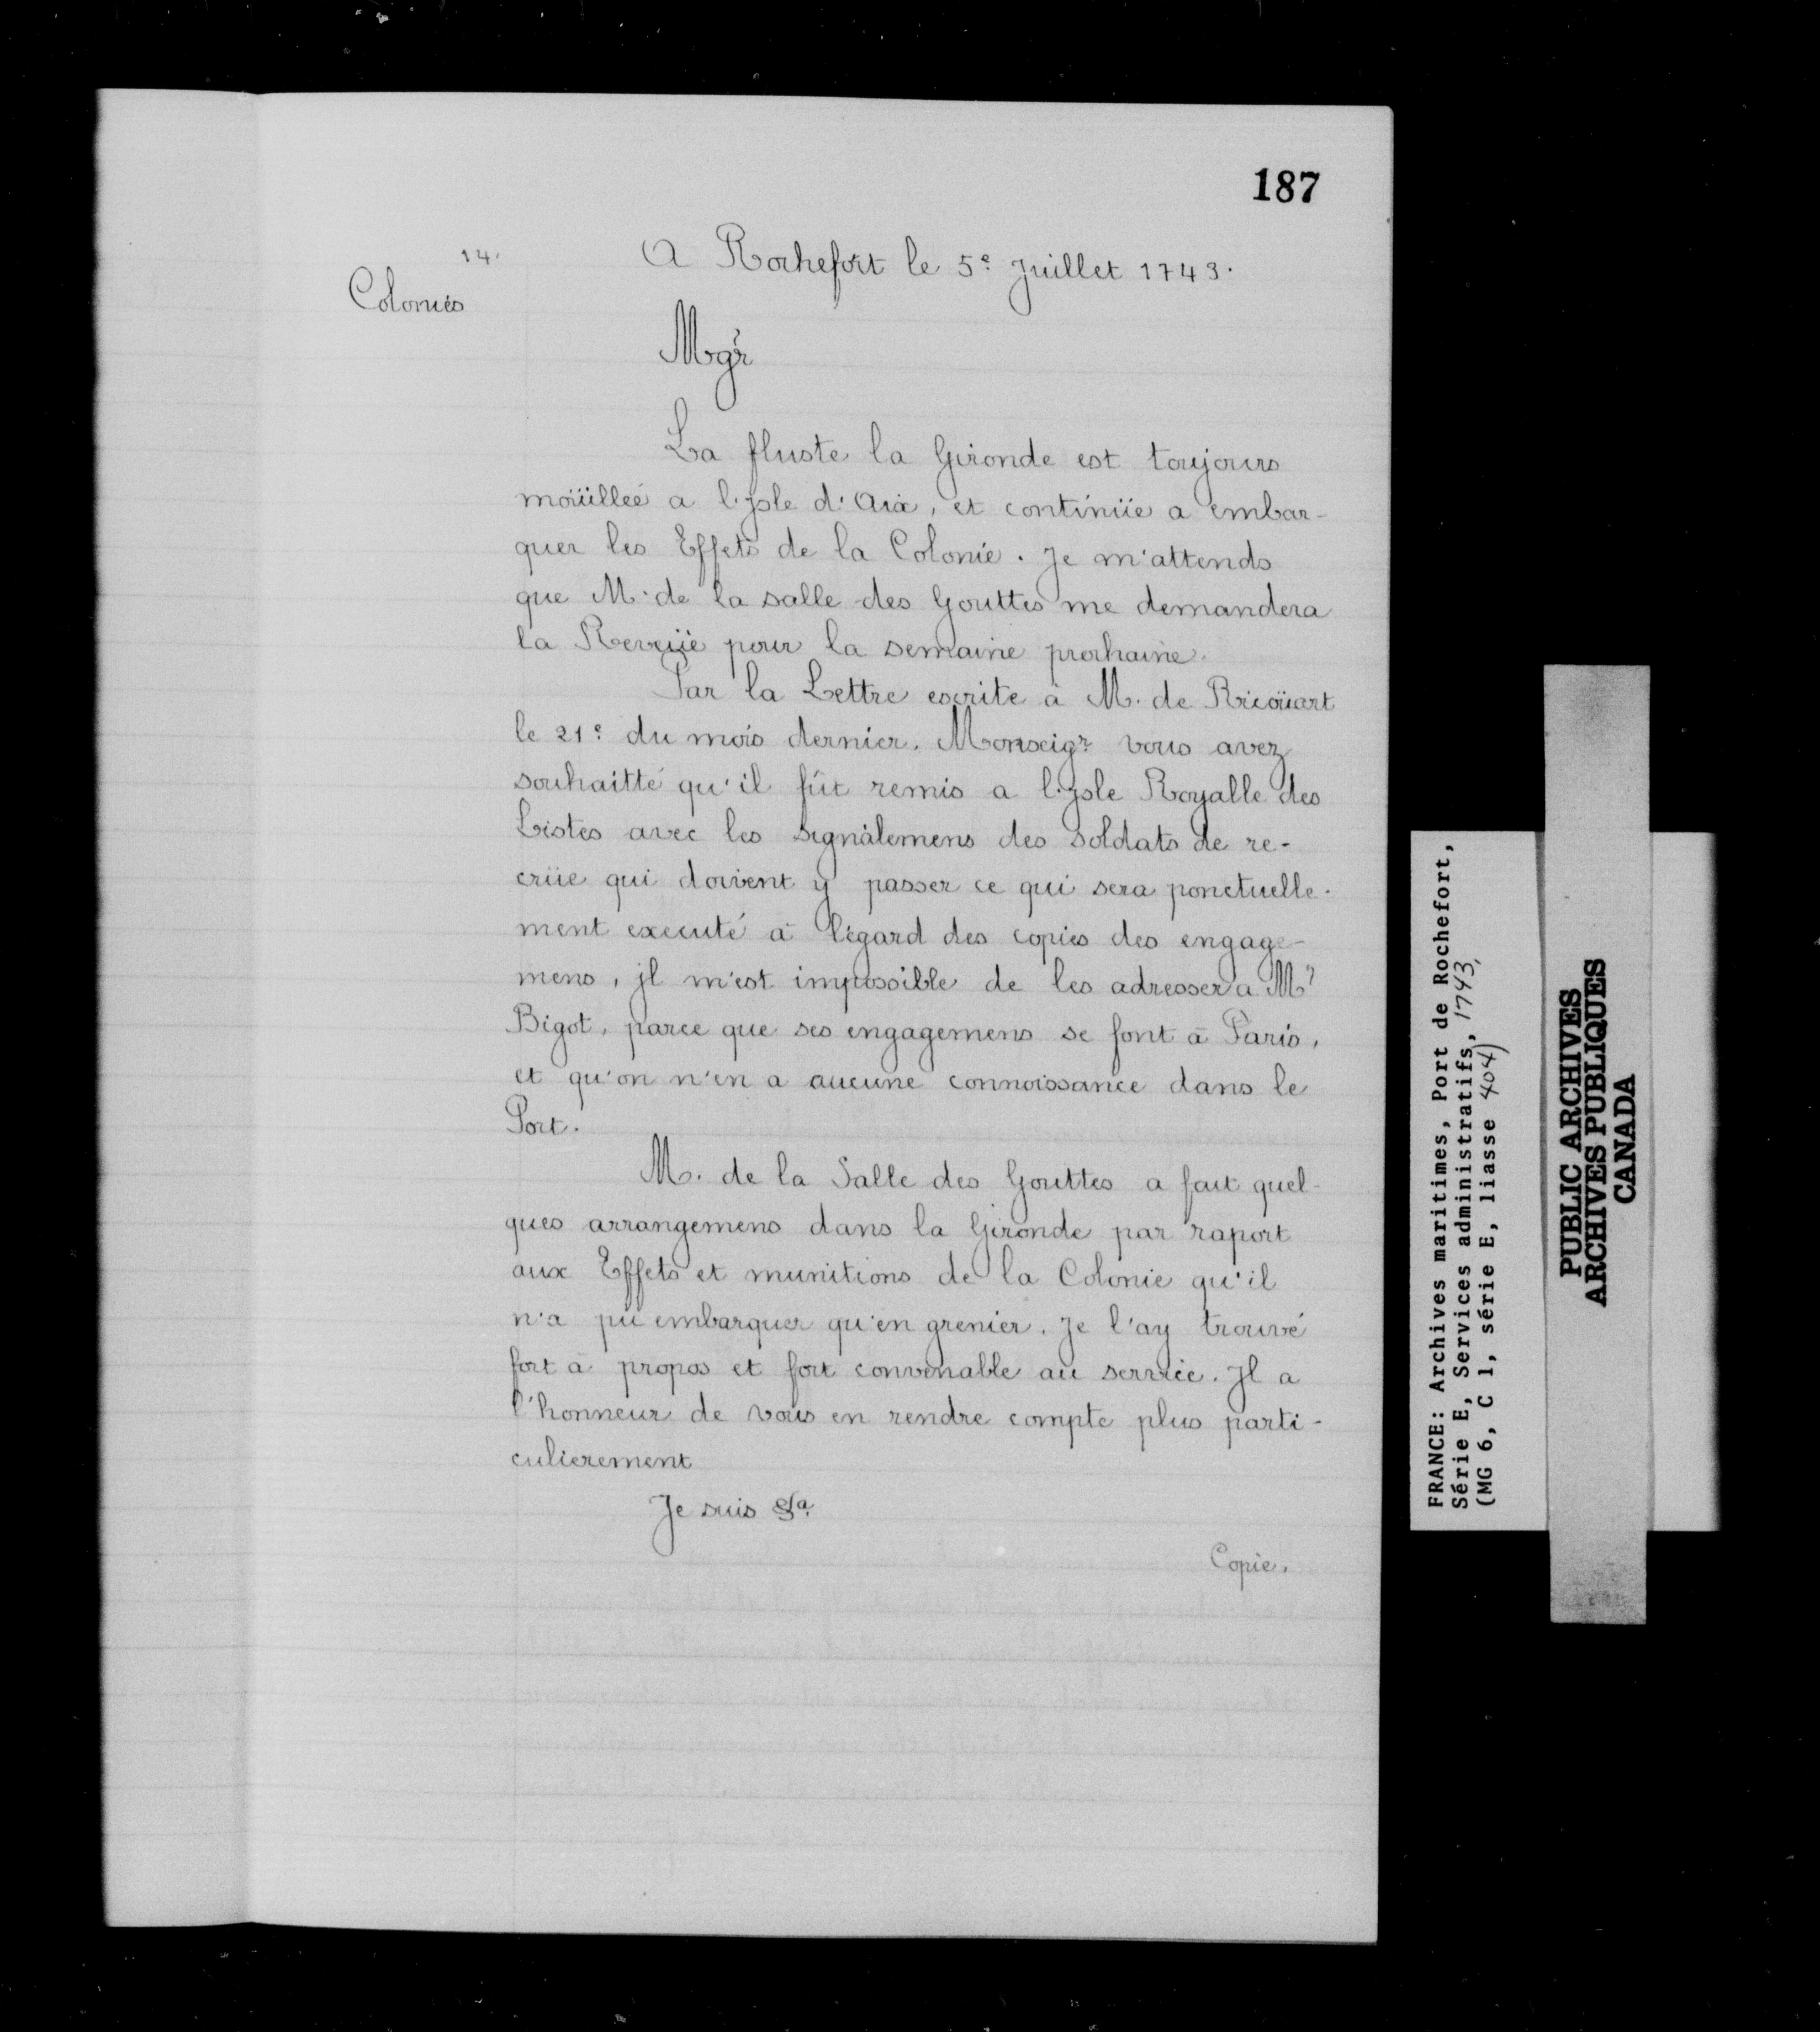 187
14.
Colonies
A Rochefort le 5e Juillet 1743.
Mgr
La fluste la Gironde est toujours
moüilleé a l'jsle d'Aix, et continüe a embar-
quer les Effets de la Colonie. Je m'attends
que M. de la salle des Gouttes me demandera
la Reveüe pour la semaine prochaine.
Par la Lettre escrite à M. de Ricoüart
le 21e du mois dernier. Monseigr vous avez
souhaitté qu'il fût remis a l'jsle Royalle des
Listes avec les signàlemens des soldats de re-
crüe qui doivent y passer ce qui sera ponctuelle-
ment executé à l'égard des copies des engage-
mens, jl m'est impossible de les adresser a Mr
Bigot, parce que ses engagemens se font à Paris,
et qu'on n'en a aucune connoissance dans le
Port.
M. de la Salle des Gouttes a fait quel-
ques arrangemens dans la Gironde par raport
aux Effets et munitions de la Colonie qu'il
n'a pù embarquer qu'en grenier. Je l'ay trouvé
fort à propos et fort convenable au service. Jl a
l'honneur de vous en rendre compte plus parti-
culierement
Je suis &a
Copie.
FRANCE: Archives maritimes, Port de Rochefort,
Série E, Services administratifs, 1743,
(MG 6, C 1, série E, liasse 404)
PUBLIC ARCHIVES
ARCHIVES PUBLIQUES
CANADA